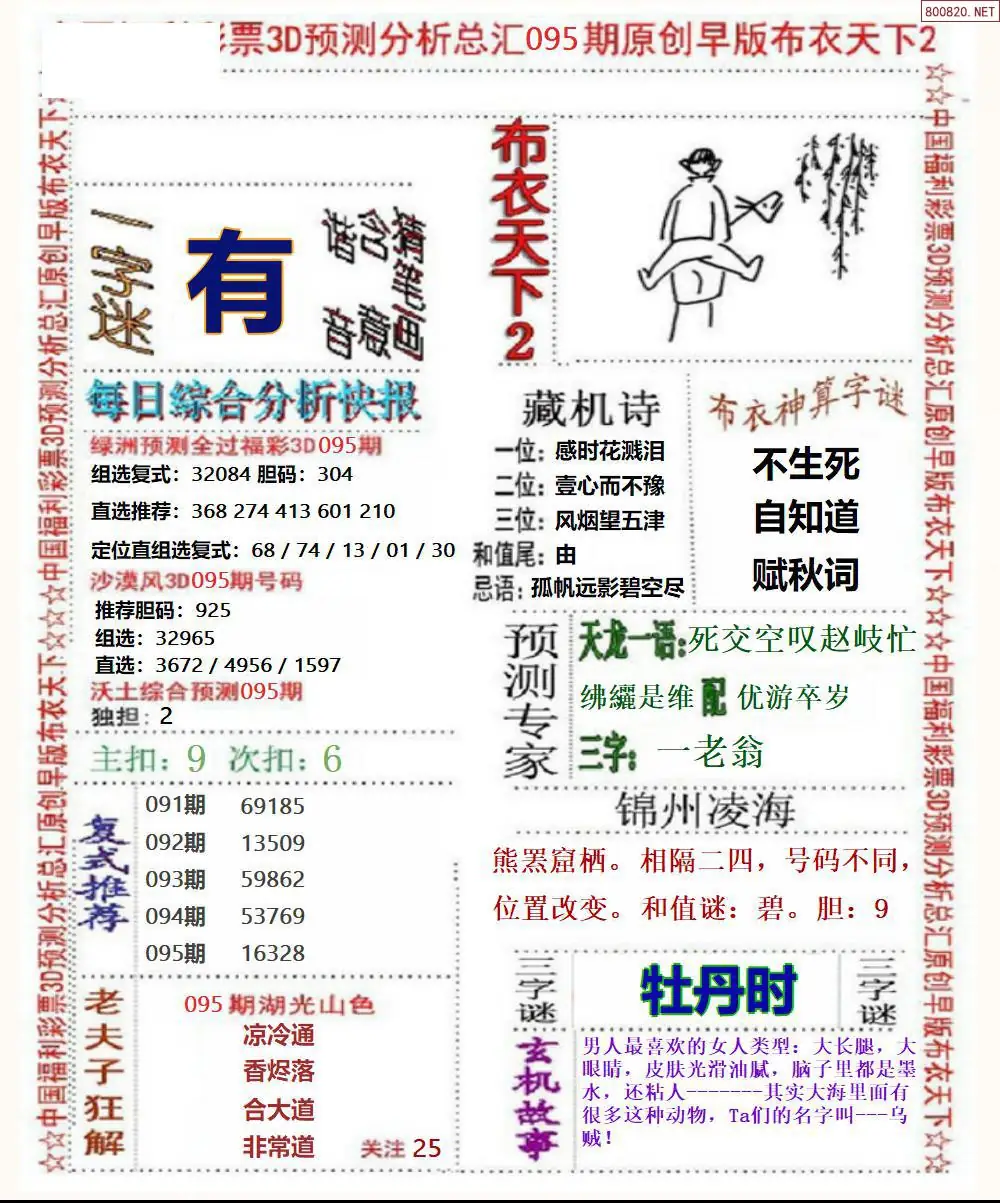 800820.NET
彩票3D预测分析总汇095期原创早版布衣天下2
中国福利彩票3D预测分析总汇原创早版布衣天下☆☆☆中国福利彩票3D预测分析总汇原创早版布衣天下
一字迷
有
猜笔画
含意
谐音
布衣天下2
每日综合分析快报
绿洲预测全过福彩3D095期
组选复式：32084 胆码：304
直选推荐：368 274 413 601 210
定位直组选复式：68 / 74 / 13 / 01 / 30
沙漠风3D095期号码
推荐胆码：925
组选：32965
直选：3672 / 4956 / 1597
沃土综合预测095期
独担：2
主扣：9 次扣：6
复式推荐
091期 69185
092期 13509
093期 59862
094期 53769
095期 16328
老夫子狂解
095期湖光山色
凉冷通
香烬落
合大道
非常道 关注 25
藏机诗
一位：感时花溅泪
二位：壹心而不豫
三位：风烟望五津
和值尾：由
忌语：孤帆远影碧空尽
布衣神算字谜
不生死
自知道
赋秋词
预测专家
天龙一语:死交空叹赵岐忙
绋纚是维 配 优游卒岁
三字: 一老翁
锦州凌海
熊罴窟栖。相隔二四，号码不同，
位置改变。和值谜：碧。胆：9
三字谜
牡丹时
三字谜
玄机故事
男人最喜欢的女人类型：大长腿，大
眼睛，皮肤光滑油腻，脑子里都是墨
水，还粘人-------其实大海里面有
很多这种动物，Ta们的名字叫---乌
贼！
中国福利彩票3D预测分析总汇原创早版布衣天下☆☆☆中国福利彩票3D预测分析总汇原创早版布衣天下